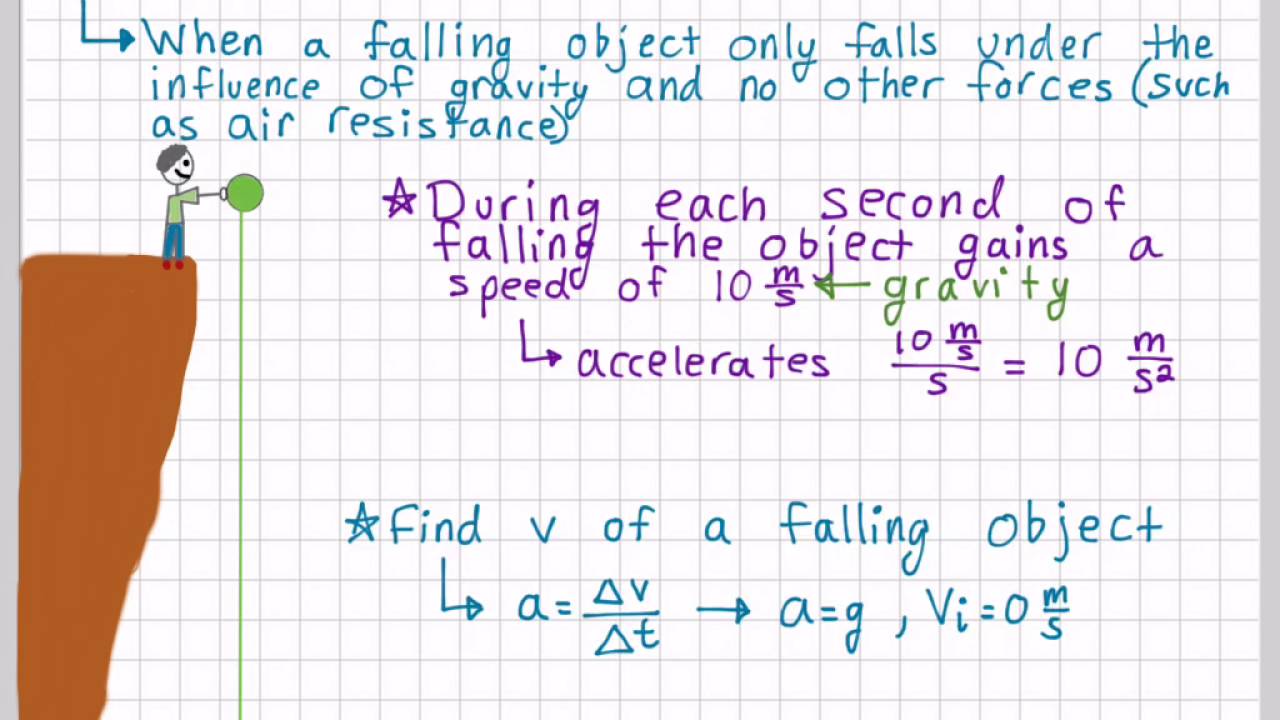 When a falling object only falls under the
influence of gravity and no other forces (such
as air resistance)
☆ During each second of
falling the object gains a
speed of 10 m/s ← gravity
↳ accelerates (10 m/s)/s = 10 m/s²
☆ Find v of a falling object
↳ a = Δv/Δt → a = g , Vi = 0 m/s